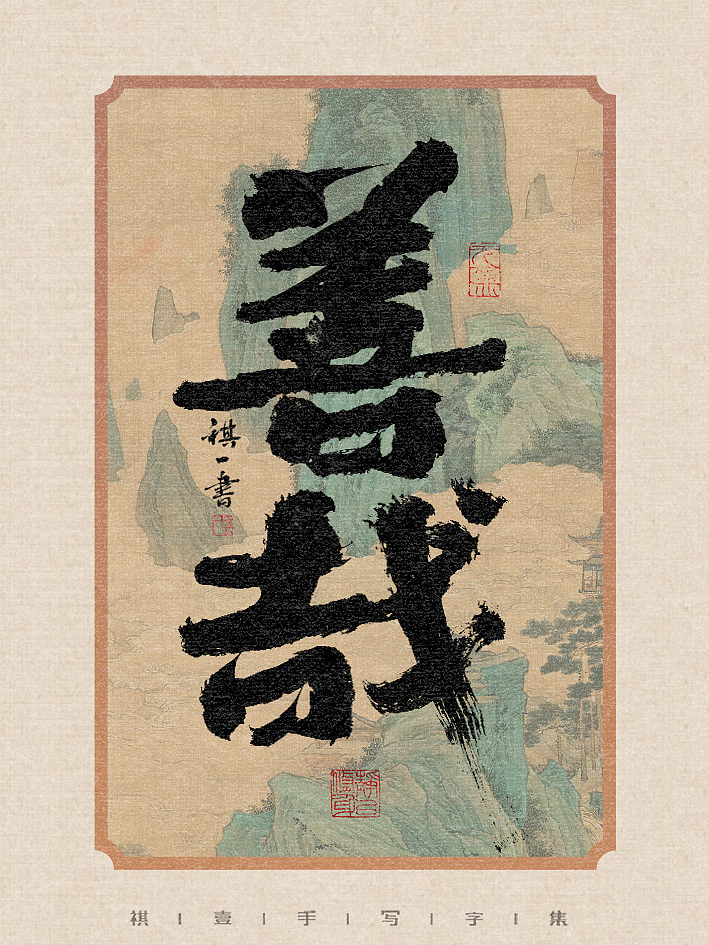 善哉
祺一書
祺壹手写字集